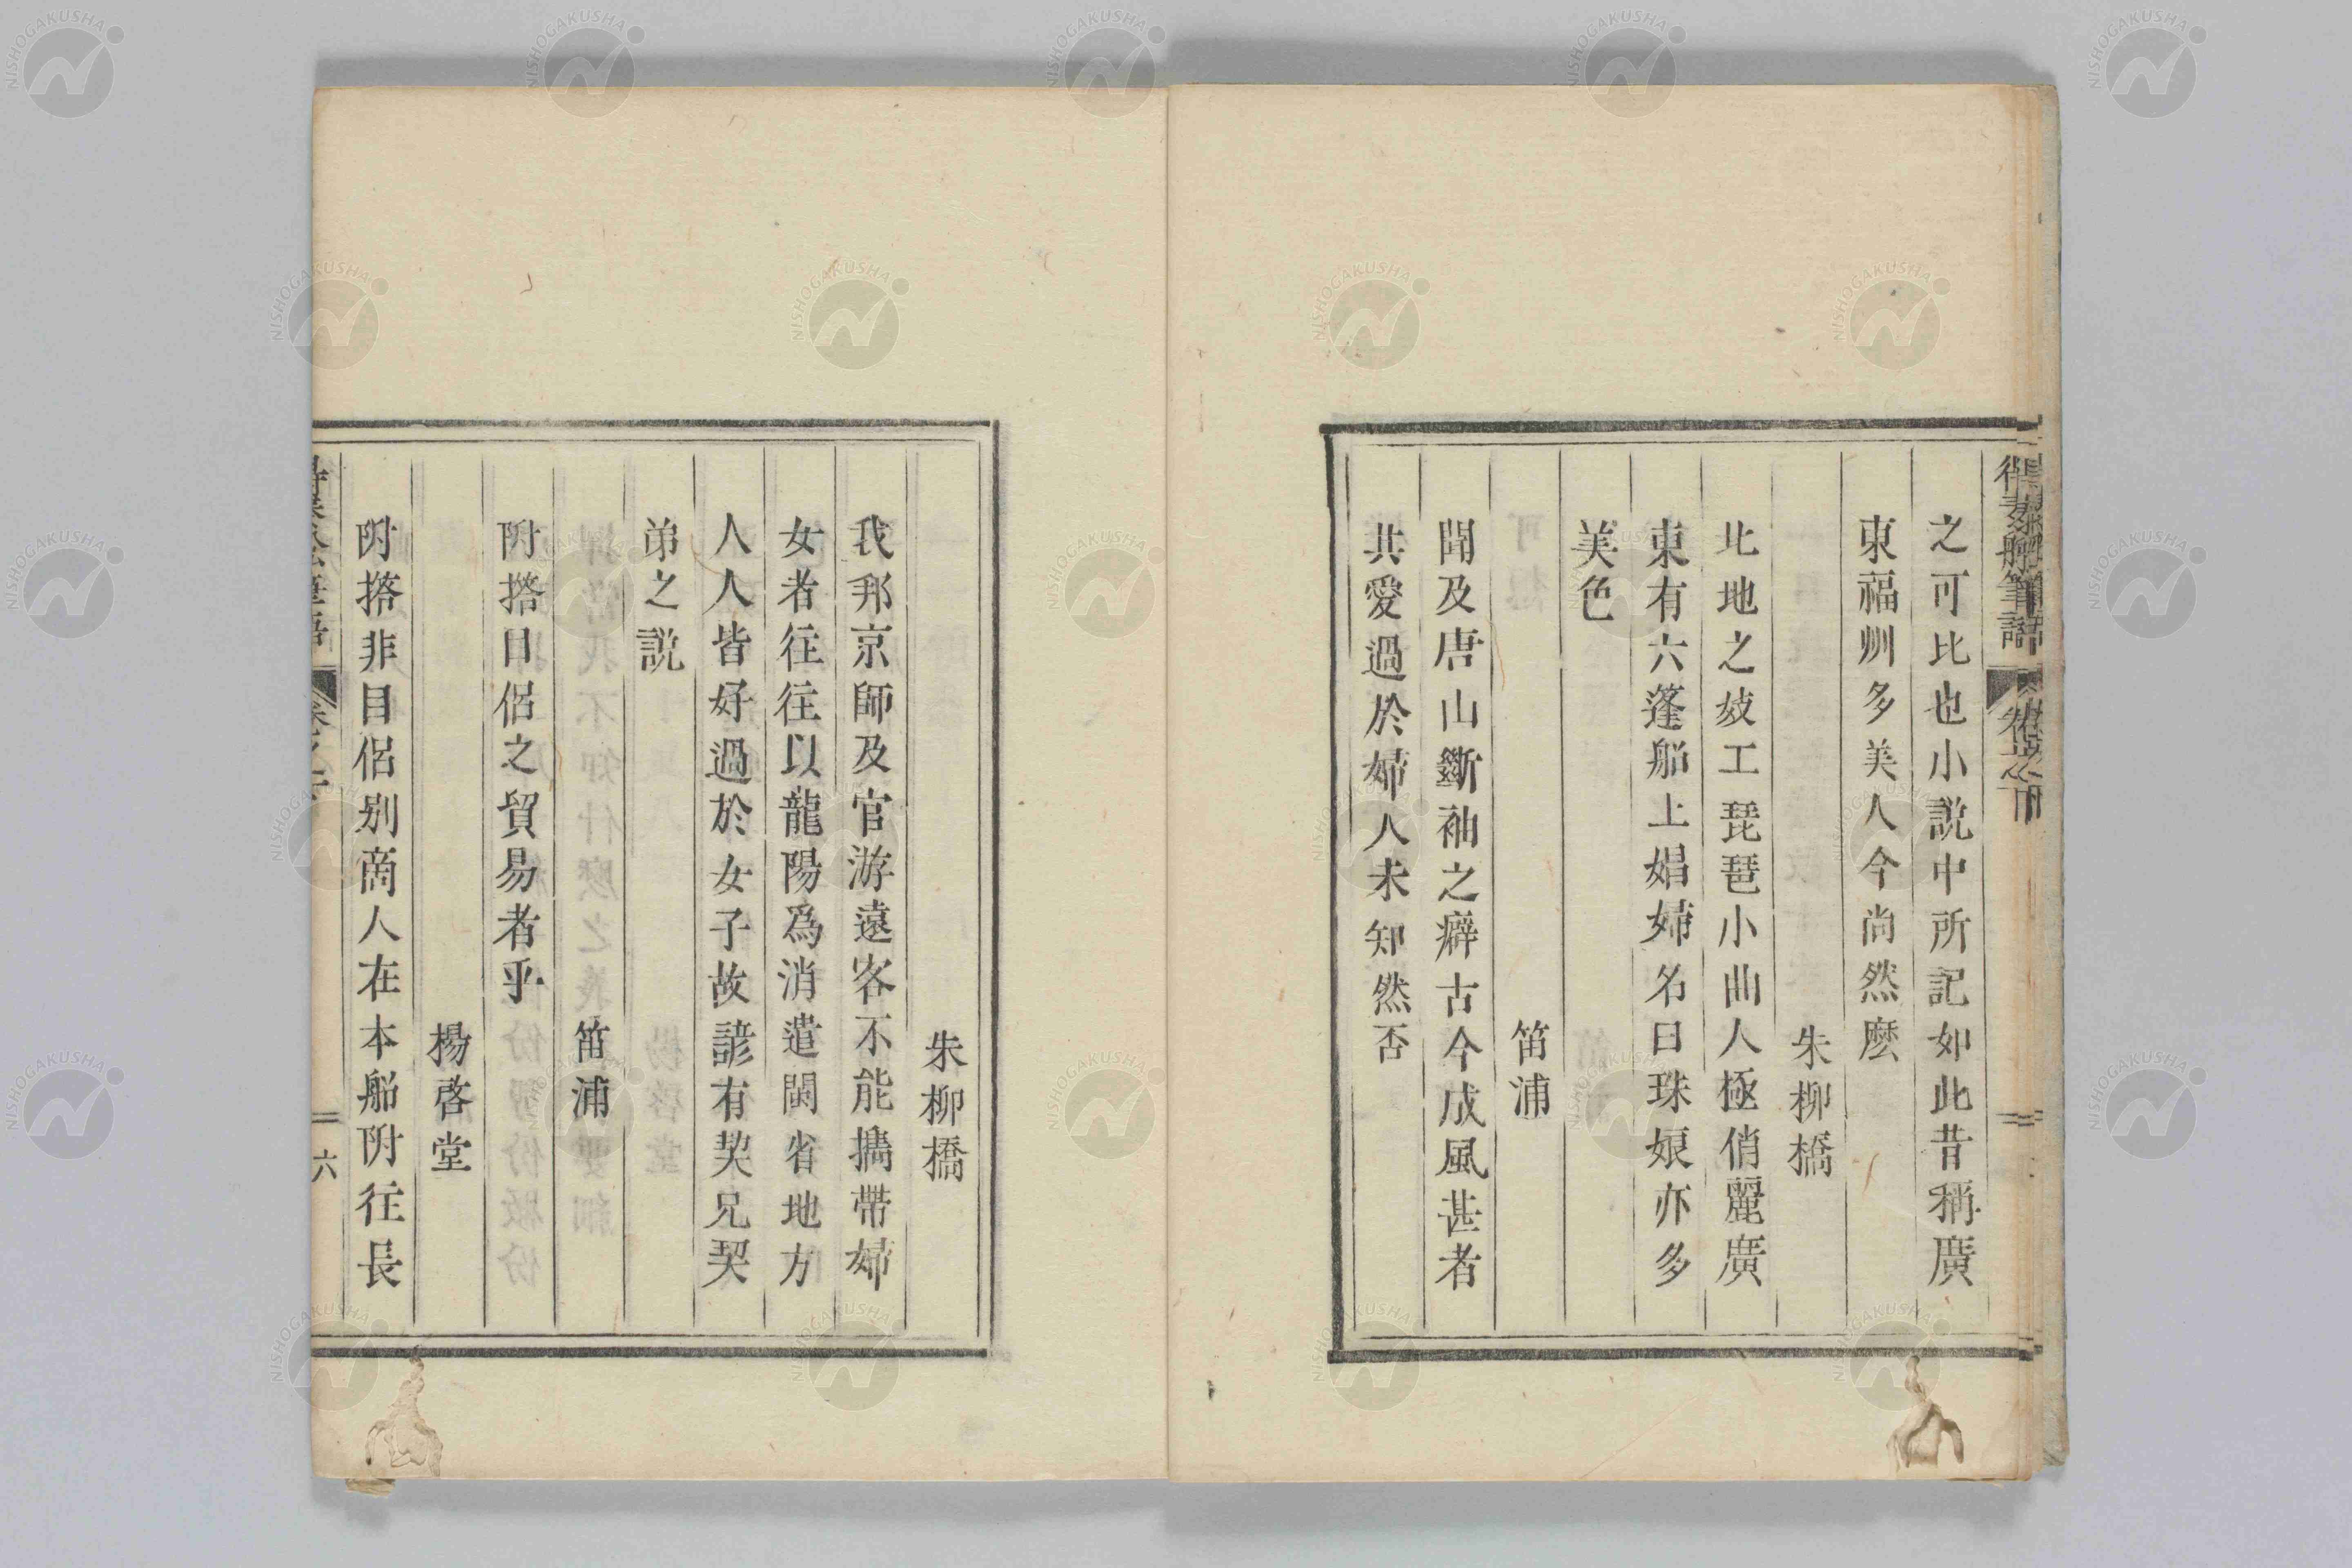 之可比也小説中所記如此昔稱廣
東福州多美人今尚然麽
朱柳橋
北地之妓工琵琶小曲人極俏麗廣
東有六蓬船上娼婦名曰珠娘亦多
美色
笛浦
聞及唐山斷袖之癖古今成風甚者
共愛過於婦人未知然否
朱柳橋
我邦京師及官游遠客不能攜帶婦
女者往往以龍陽爲消遣閩省地方
人人皆好過於女子故諺有契兄契
弟之説
笛浦
附搭目侣之貿易者乎
楊啓堂
附搭非目侣别商人在本船附往長
六
NISHOGAKUSHA